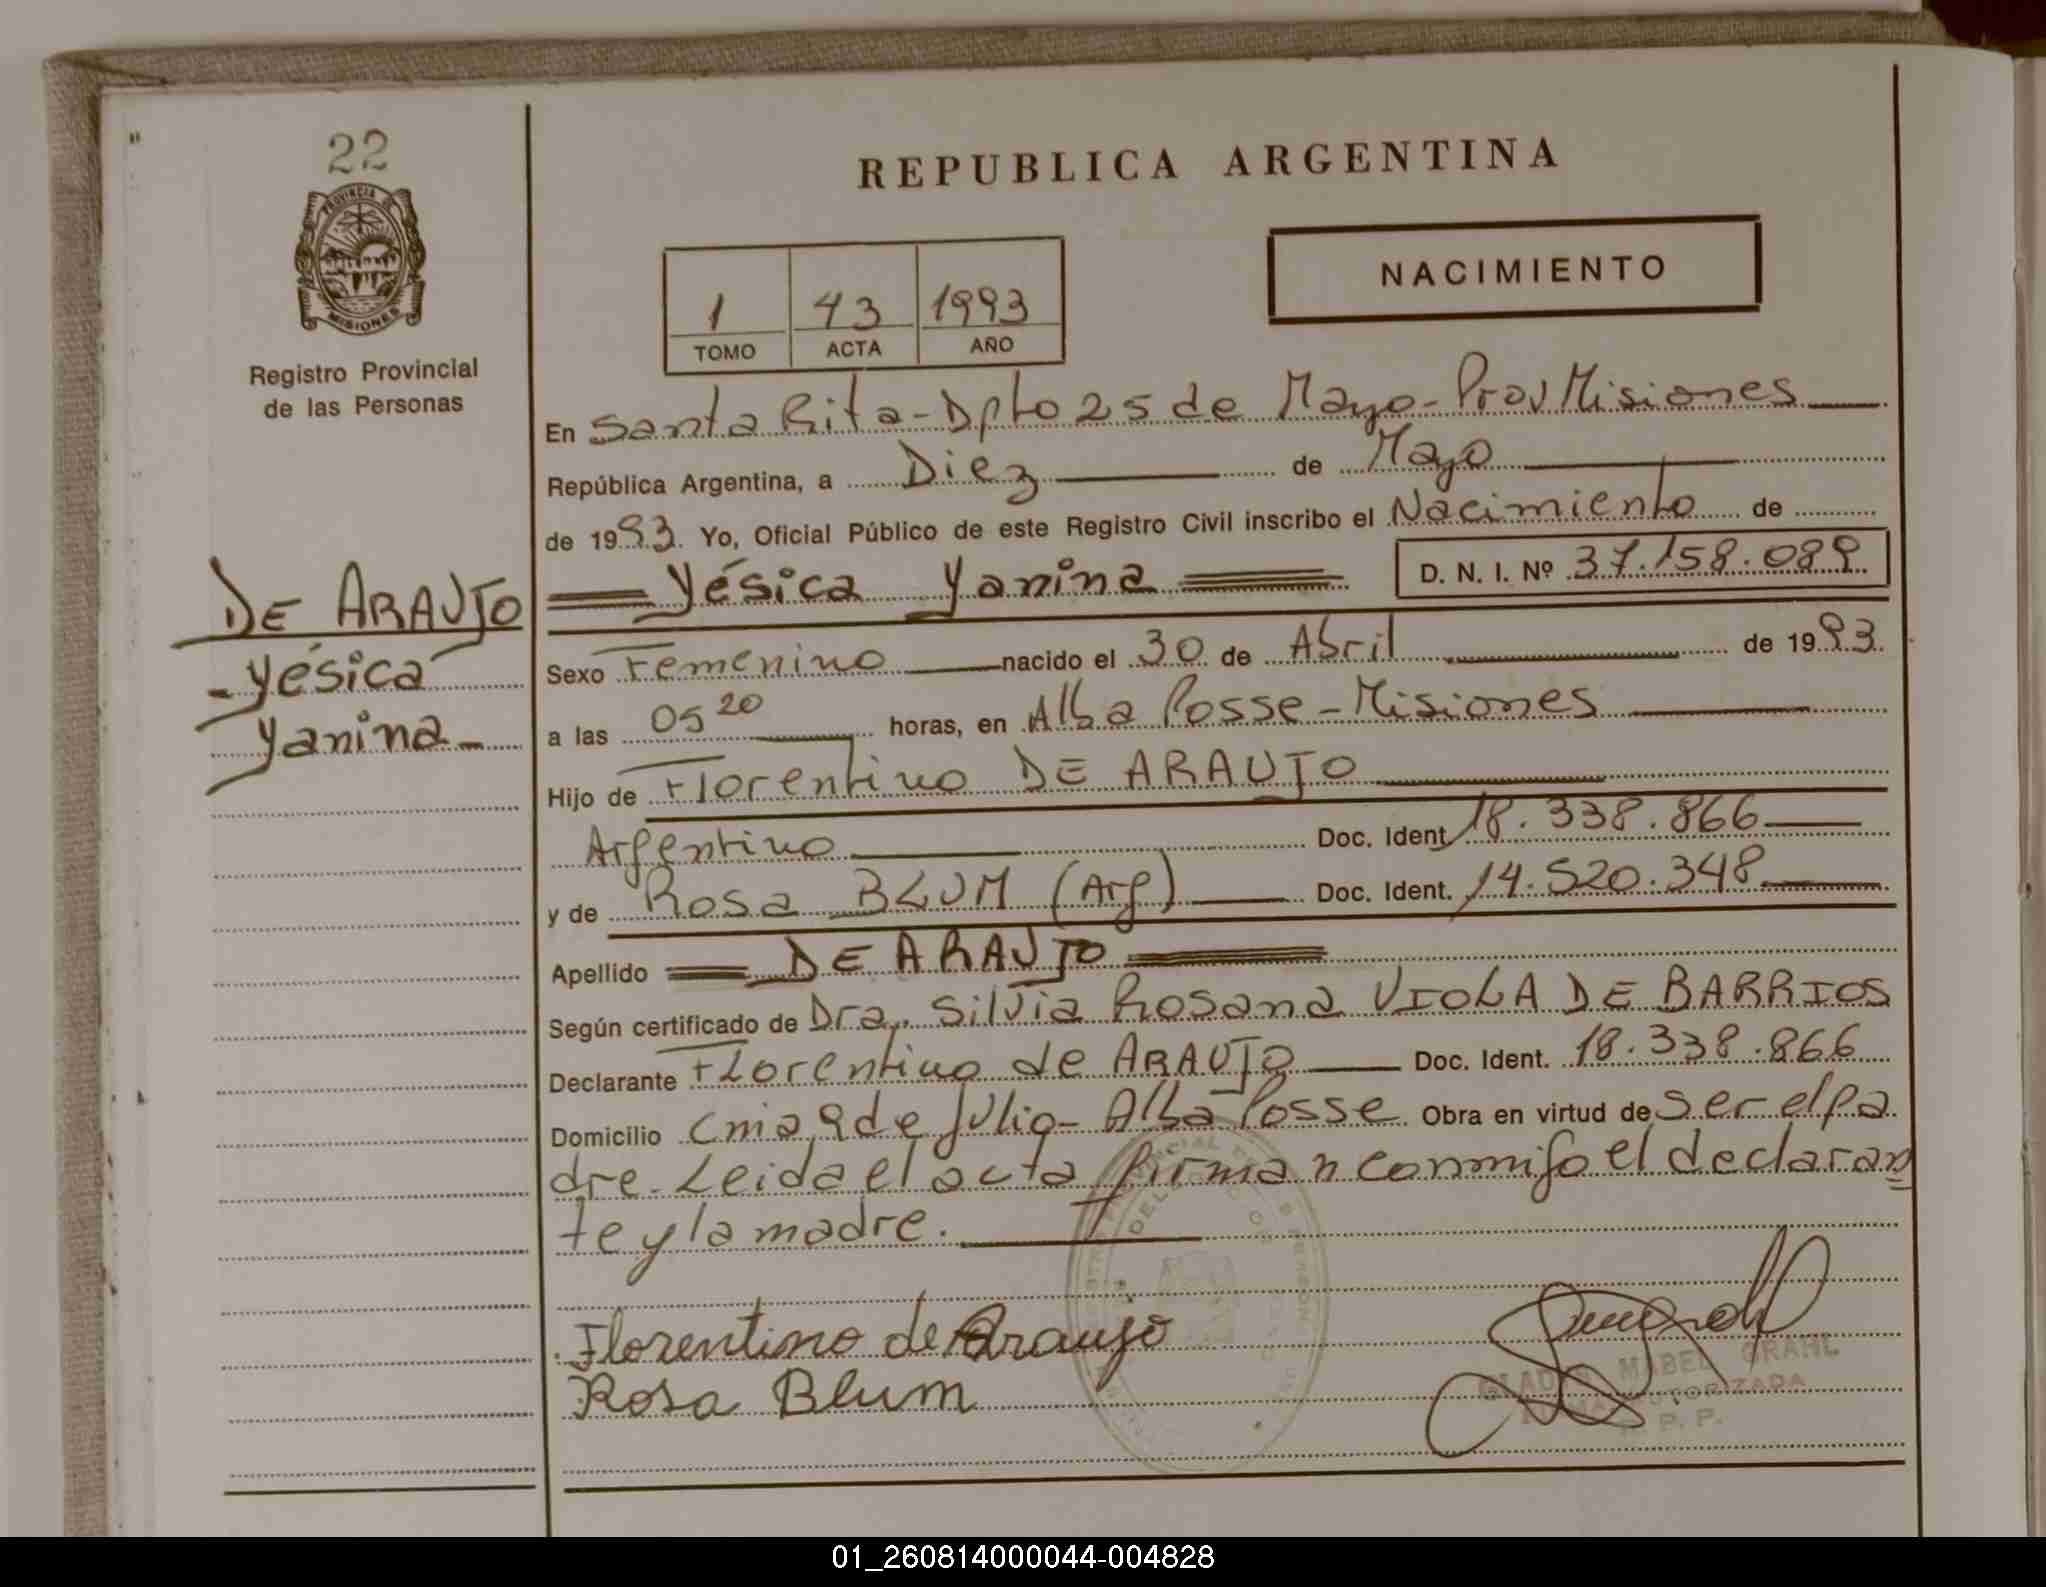 22
PROVINCIA DE
MISIONES
Registro Provincial
de las Personas
DE ARAUJO
- Yésica
Yanina -
REPUBLICA ARGENTINA
NACIMIENTO
1 43 1993
TOMO ACTA AÑO
En Santa Rita - Dpto 25 de Mayo - Prov Misiones
República Argentina, a Diez de Mayo
de 1993. Yo, Oficial Público de este Registro Civil inscribo el Nacimiento de
Yésica Yanina D. N. I. Nº 37.158.089
Sexo Femenino nacido el 30 de Abril de 1993.
a las 05 20 horas, en Alba Posse - Misiones
Hijo de Florentino DE ARAUJO
Argentino Doc. Ident. 18.338.866
y de Rosa BLUM (Arg) Doc. Ident. 14.520.348
Apellido DE ARAUJO
Según certificado de Dra. Silvia Rosana VIOLA DE BARRIOS
Declarante Florentino de ARAUJO Doc. Ident. 18.338.866
Domicilio Cnia 9 de Julio - Alba Posse Obra en virtud de ser el pa
dre. Leida el acta firman conmigo el declaran
te y la madre.
Florentino de Araujo
Rosa Blum
GLADYS MABEL GRAHL
FIRMA AUTORIZADA
R. P. P.
01_260814000044-004828